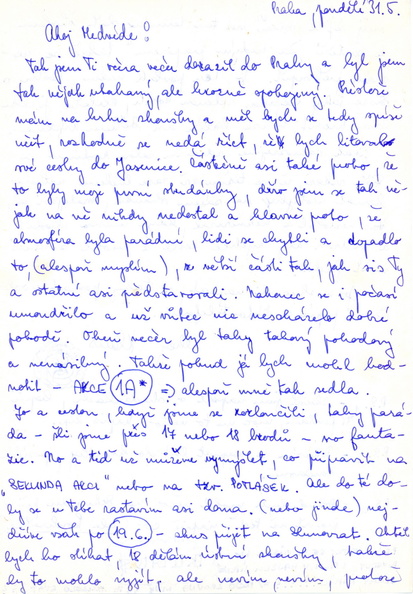 Praha, pondělí 31.5.
Ahoj Medvěde!
Tak jsem Ti včera večer dorazil do Prahy a byl jsem
tak nějak utahaný, ale hrozně spokojený. Přestože
mám na krku zkoušky a měl bych se tedy spíše
učit, rozhodně se nedá říct, že bych litoval
své cesty do Jasenice. Částečně asi také proto, že
to byly moje první slezdávky, dřív jsem se tak ně-
jak na ně nikdy nedostal a hlavně proto, že
atmosféra byla parádní, lidi se chytli a dopadlo
to, (alespoň myslím), ze větší části tak, jak sis Ty
a ostatní asi představovali. Nakonec se i počasí
umoudřilo a už vůbec nic nescházelo dobré
pohodě. Oheň večer byl taky takový pohodový
a nenásilný. Takže pokud já bych mohl hod-
notit – AKCE 1A* => alespoň mně tak sedla.
Jo a cestou, když jsme se rozloučili, taky pará-
da – šli jsme přes 17 nebo 18 brodů – no fanta-
zie. No a teď už můžeme vymýšlet, co připravit na
"SEKUNDA AKCI" nebo na tzv. POTLAŠEK. Ale do té do-
by se u tebe zastavím asi doma. (nebo jinde) nej-
dříve však po 19.6. – zkus přijet na Slunovrat. Chtěl
bych ho stihat, 18 dělám ústní zkoušky, takže
by to mohlo vyjít, ale nevím, nevím, protože